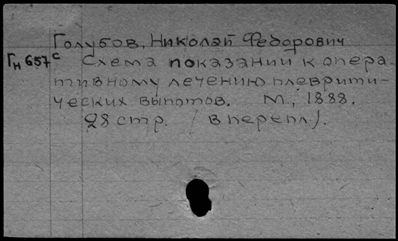 Голубов, Николай Федорович
Гн 657 с Схема показаний к опера-
тивному лечению плеврити-
ческих выпотов. М., 1888.
28 стр. / в перепл.).